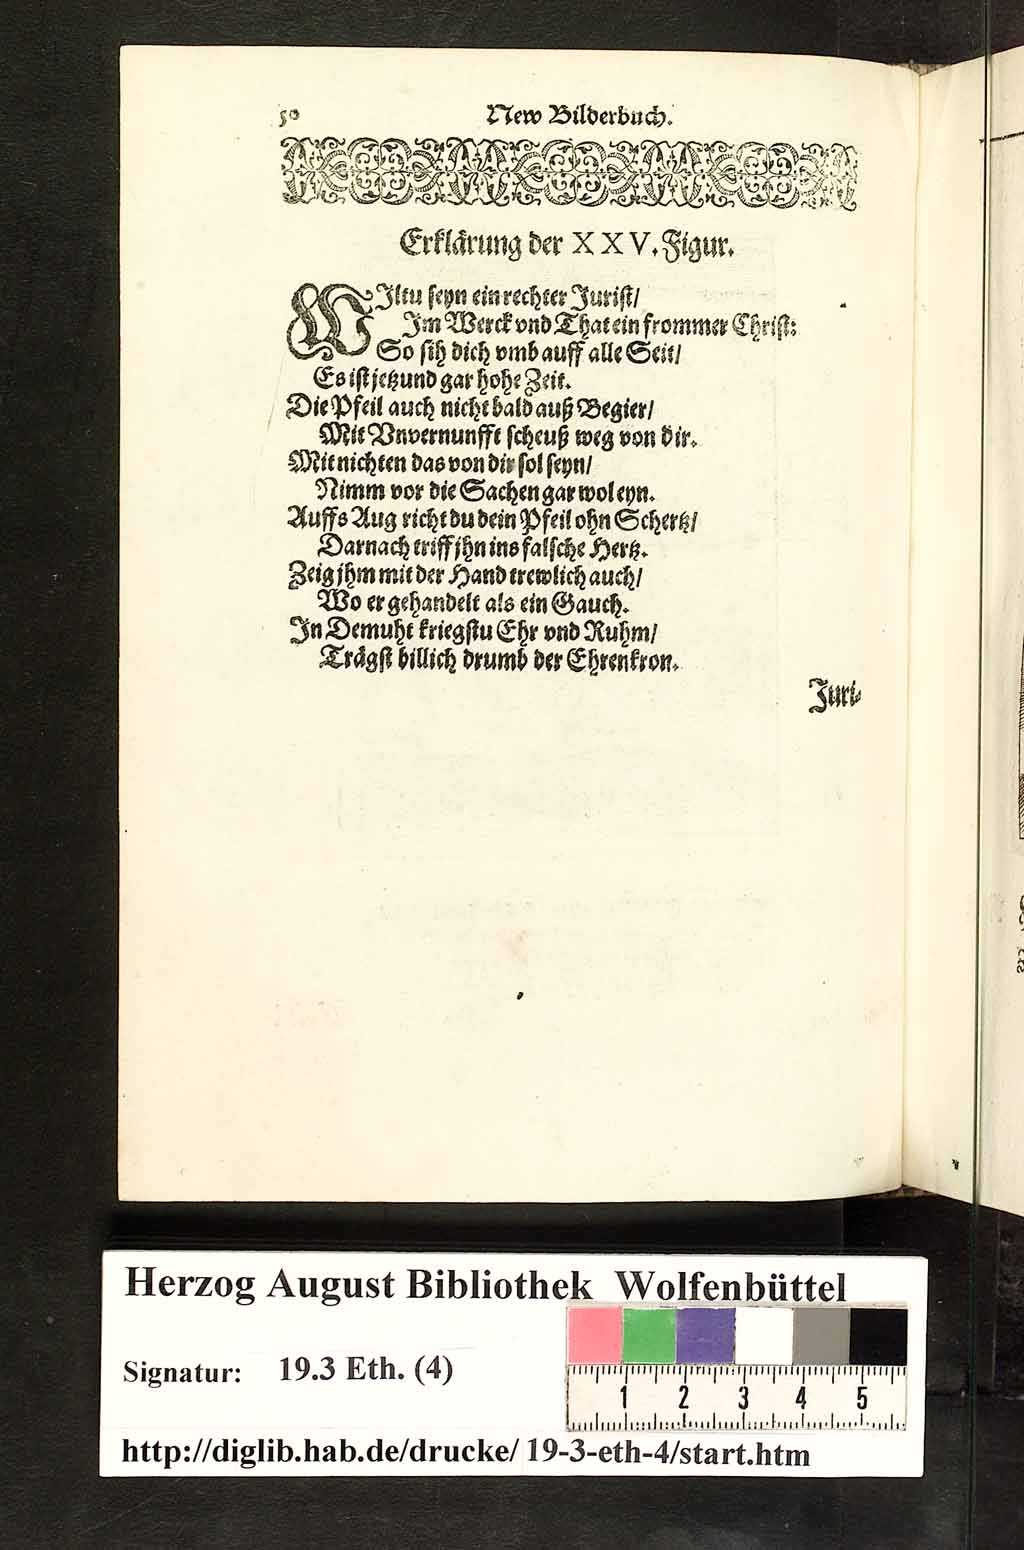 50 New Bilderbuch.
Erklärung der XXV. Figur.
WIltu seyn ein rechter Jurist/
Im Werck vnd That ein frommer Christ:
So sih dich vmb auff alle Seit/
Es ist jetzund gar hohe Zeit.
Die Pfeil auch nicht bald auß Begier/
Mit Vnvernunfft scheuß weg von dir.
Mit nichten das von dir sol seyn/
Nimm vor die Sachen gar wol eyn.
Auffs Aug richt du dein Pfeil ohn Schertz/
Darnach triff jhn ins falsche Hertz.
Zeig jhm mit der Hand trewlich auch/
Wo er gehandelt als ein Gauch.
In Demuht kriegstu Ehr vnd Ruhm/
Trägst billich drumb der Ehrenkron.
Juri-
Herzog August Bibliothek Wolfenbüttel
Signatur: 19.3 Eth. (4)
1 2 3 4 5
http://diglib.hab.de/drucke/19-3-eth-4/start.htm